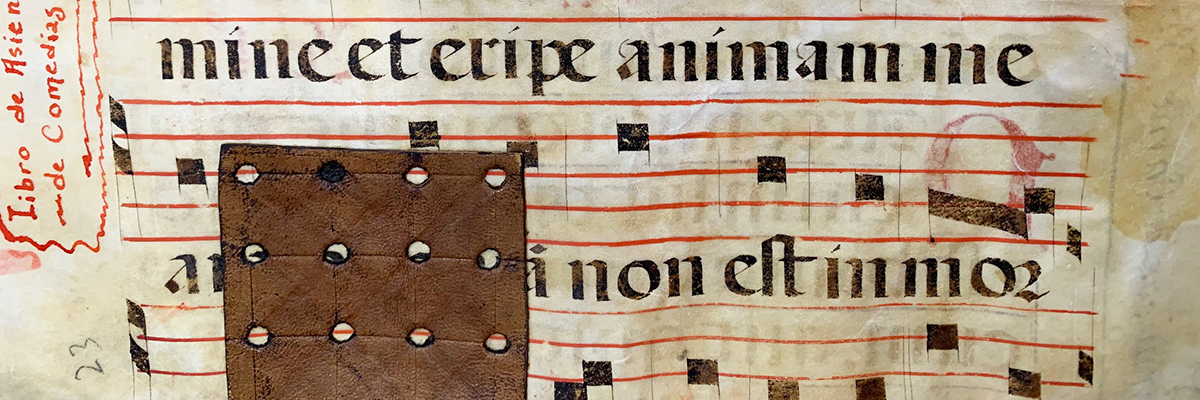 Libro de Asien
de Comedias
mine et eripe animam me
ā non est in mor
23